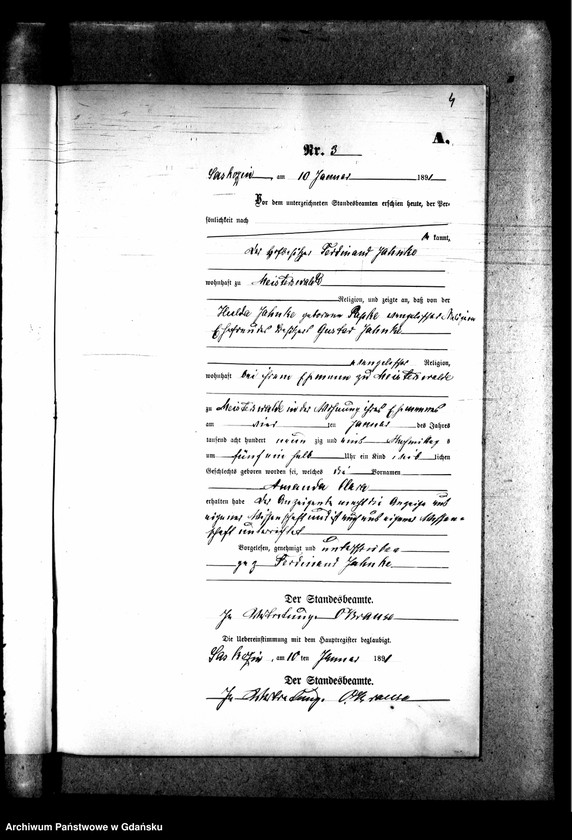 4
A.
Nr. 3
Saskozin, am 10 Januar 1891
Vor dem unterzeichneten Standesbeamten erschien heute, der Per-
sönlichkeit nach
kannt,
Der Hofbesitzer Ferdinand Jahnke
wohnhaft zu Meisterswalde
Religion, und zeigte an, daß von der
Hulda Jahnke geborenen evangelischer Religion
Ehefrau des Gustav Jahnke
evangelischer Religion,
wohnhaft bei ihrem Ehemann zu Meisterswalde
zu Meisterswalde in der Wohnung ihres Ehemannes
am vier ten Januar des Jahres
tausend acht hundert neun zig und eins Nachmittag s
um fünf ein halb Uhr ein Kind weib lichen
Geschlechts geboren worden sei, welches die Vornamen
Amanda Clara
erhalten habe Der Anzeigende macht die Anzeige aus
eigener Wissenschaft und ist auch aus eigener Wissen-
schaft unterrichtet
Vorgelesen, genehmigt und unterschrieben
gez Ferdinand Jahnke
Der Standesbeamte.
In Vertretung. O Krause
Die Uebereinstimmung mit dem Hauptregister beglaubigt.
Saskozin, am 10 ten Januar 1891
Der Standesbeamte.
In Vertretung. O. Krause
Archiwum Państwowe w Gdańsku